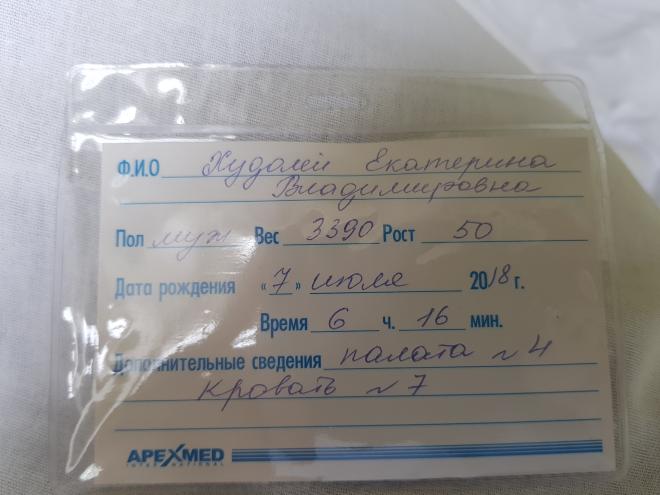 Ф.И.О Худолей Екатерина
Владимировна
Пол муж Вес 3390 Рост 50
Дата рождения «7» июля 2018 г.
Время 6 ч. 16 мин.
Дополнительные сведения палата N 4
кровать N 7
APEXMED
INTERNATIONAL